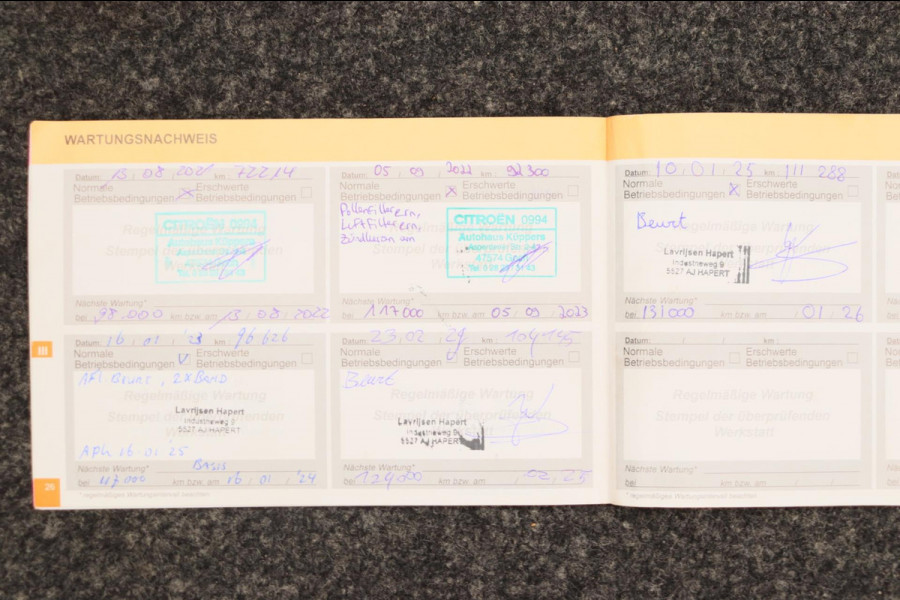 WARTUNGSNACHWEIS
Datum: 13 08 2021 km: 72214
Normale Betriebsbedingungen X Erschwerte Betriebsbedingungen
CITROËN 0994
Nächste Wartung*
bei 98.000 km bzw. am 13 08 2022
Datum: 05 09 2022 km: 92 300
Normale Betriebsbedingungen X Erschwerte Betriebsbedingungen
Pollenfilter ern,
Luftfilter ern,
CITROËN 0994
Autohaus Küppers
47574
Nächste Wartung*
bei 117000 km bzw. am 05 09 2023
Datum: 10 01 25 111 288
Normale Betriebsbedingungen X Erschwerte Betriebsbedingungen
Beurt
Regelmäßige Wartung
Stempel der überprüfenden
Lavrijsen Hapert
Industrieweg 9
5527 AJ HAPERT
Nächste Wartung*
bei 131000 km bzw. am 01 26
III
Datum: 16 01 23 km: 96626
Normale Betriebsbedingungen V Erschwerte Betriebsbedingungen
Beurt, 2x Band
Regelmäßige Wartung
Stempel der überprüfenden
Lavrijsen Hapert
Industrieweg 9
5527 AJ HAPERT
APK 16 01 25
Nächste Wartung* BASIS
bei 117000 km bzw. am 16 01 '24
Datum: 23 02 24 km: 104145
Normale Betriebsbedingungen Erschwerte Betriebsbedingungen
Beurt
Regelmäßige Wartung
Stempel der überprüfenden
Lavrijsen Hapert
Industrieweg 9
5527 AJ HAPERT
Nächste Wartung*
bei 124000 km bzw. am 02 25
Datum: km:
Normale Betriebsbedingungen Erschwerte Betriebsbedingungen
Regelmäßige Wartung
Stempel der überprüfenden
Werkstatt
Nächste Wartung*
bei km bzw. am
26
* regelmäßigen Wartungsintervall beachten
* regelmäßigen Wartungsintervall beachten